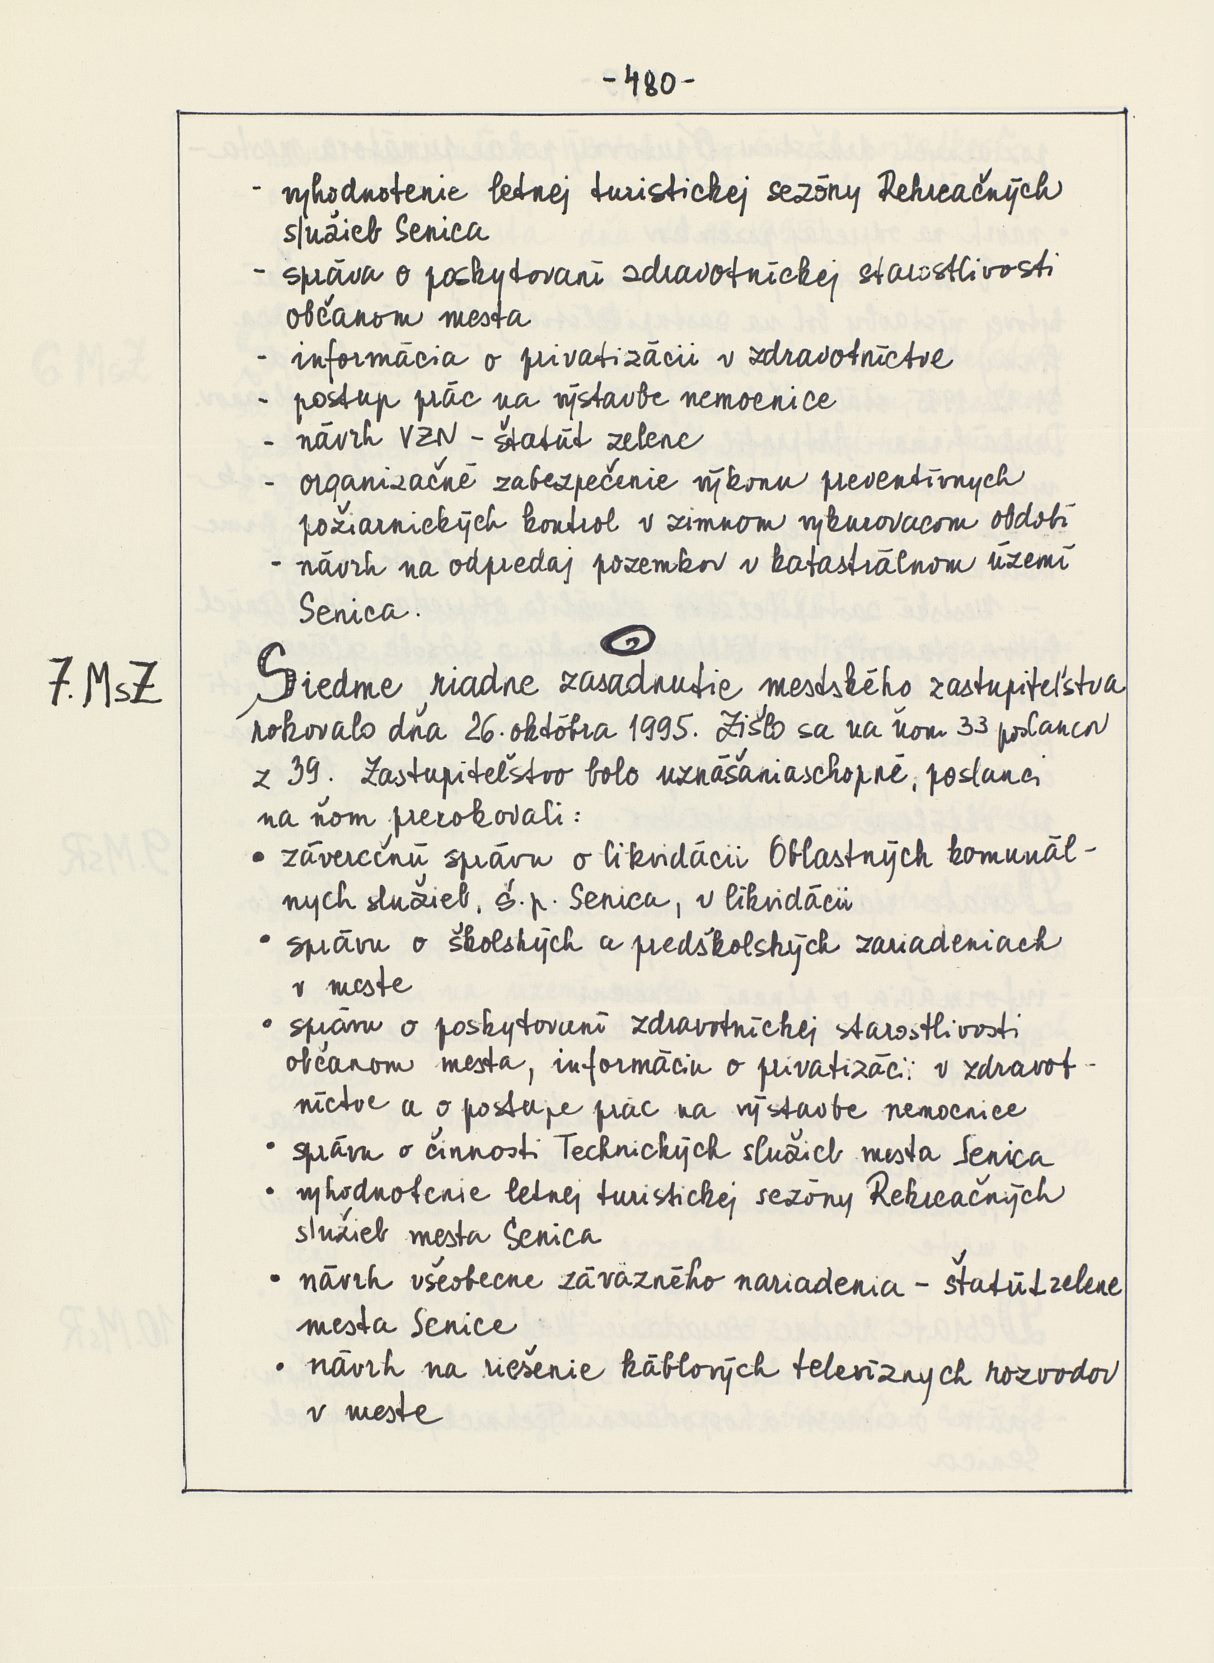 -480-
- vyhodnotenie letnej turistickej sezóny Rekreačných
služieb Senica
- správa o poskytovaní zdravotníckej starostlivosti
občanom mesta
- informácia o privatizácii v zdravotníctve
- postup prác na výstavbe nemocnice
- návrh VZN - štatút zelene
- organizačné zabezpečenie výkonu preventívnych
požiarnických kontrol v zimnom vykurovacom období
- návrh na odpredaj pozemkov v katastrálnom území
Senica.
7. MsZ
Siedme riadne zasadnutie mestského zastupiteľstva
rokovalo dňa 26. októbra 1995. Zišlo sa na ňom 33 poslancov
z 39. Zastupiteľstvo bolo uznášaniaschopné, poslanci
na ňom prerokovali:
• záverečnú správu o likvidácii Oblastných komunál-
nych služieb, š.p. Senica, v likvidácii
• správu o školských a predškolských zariadeniach
v meste
• správu o poskytovaní zdravotníckej starostlivosti
občanom mesta, informáciu o privatizácii v zdravot-
níctve a o postupe prác na výstavbe nemocnice
• správu o činnosti Technických služieb mesta Senica
• vyhodnotenie letnej turistickej sezóny Rekreačných
služieb mesta Senica
• návrh všeobecne záväzného nariadenia - štatút zelene
mesta Senice
• návrh na riešenie káblových televíznych rozvodov
v meste